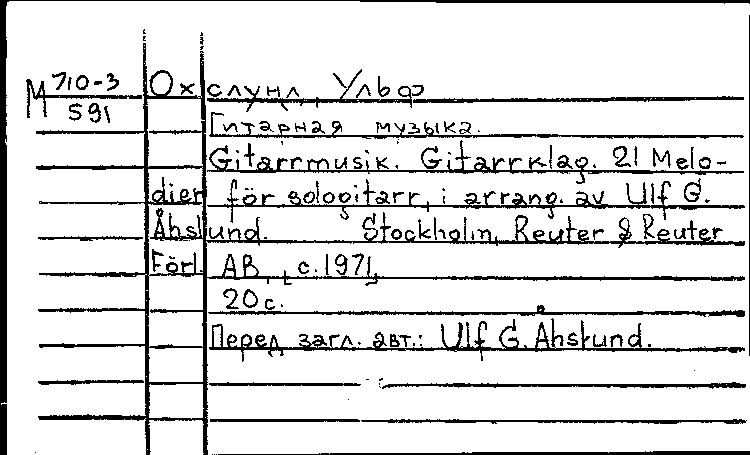 М 710-3
591
Охслунд, Ульф
Гитарная музыка.
Gitarrmusik. Gitarrklag. 21 Melo-
dier för sologitarr, i arrang. av Ulf G.
Åhslund. Stockholm, Reuter & Reuter
Förl. AB, [c. 1971]
20 с.
Перед загл. авт.: Ulf G. Åhslund.